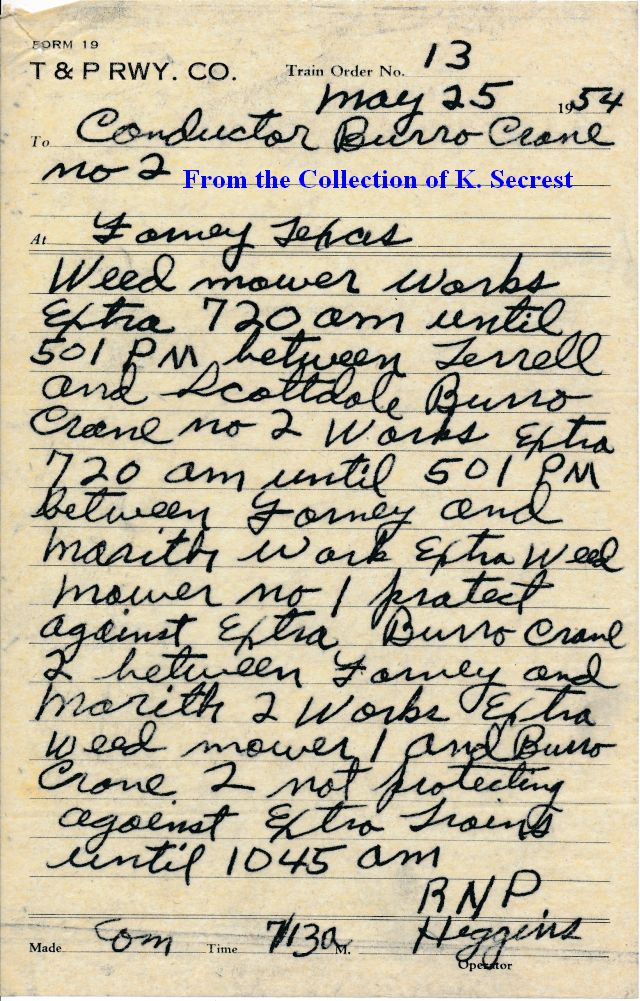 FORM 19
T & P RWY. CO. Train Order No. 13
May 25 1954
To Conductor Burro Crane
no 2 From the Collection of K. Secrest
At Forney Texas
Weed mower works
Extra 720 am until
501 PM between Terrell
and Scottdale Burro
Crane no 2 Works Extra
720 am until 501 PM
between Forney and
Marith Work Extra Weed
mower no 1 protect
against Extra Burro Crane
2 between Forney and
Marith 2 Works Extra
Weed mower 1 and Burro
Crane 2 not protecting
against Extra Trains
until 1045 am
RNP
Made Com Time 713a M. Higgins
Operator